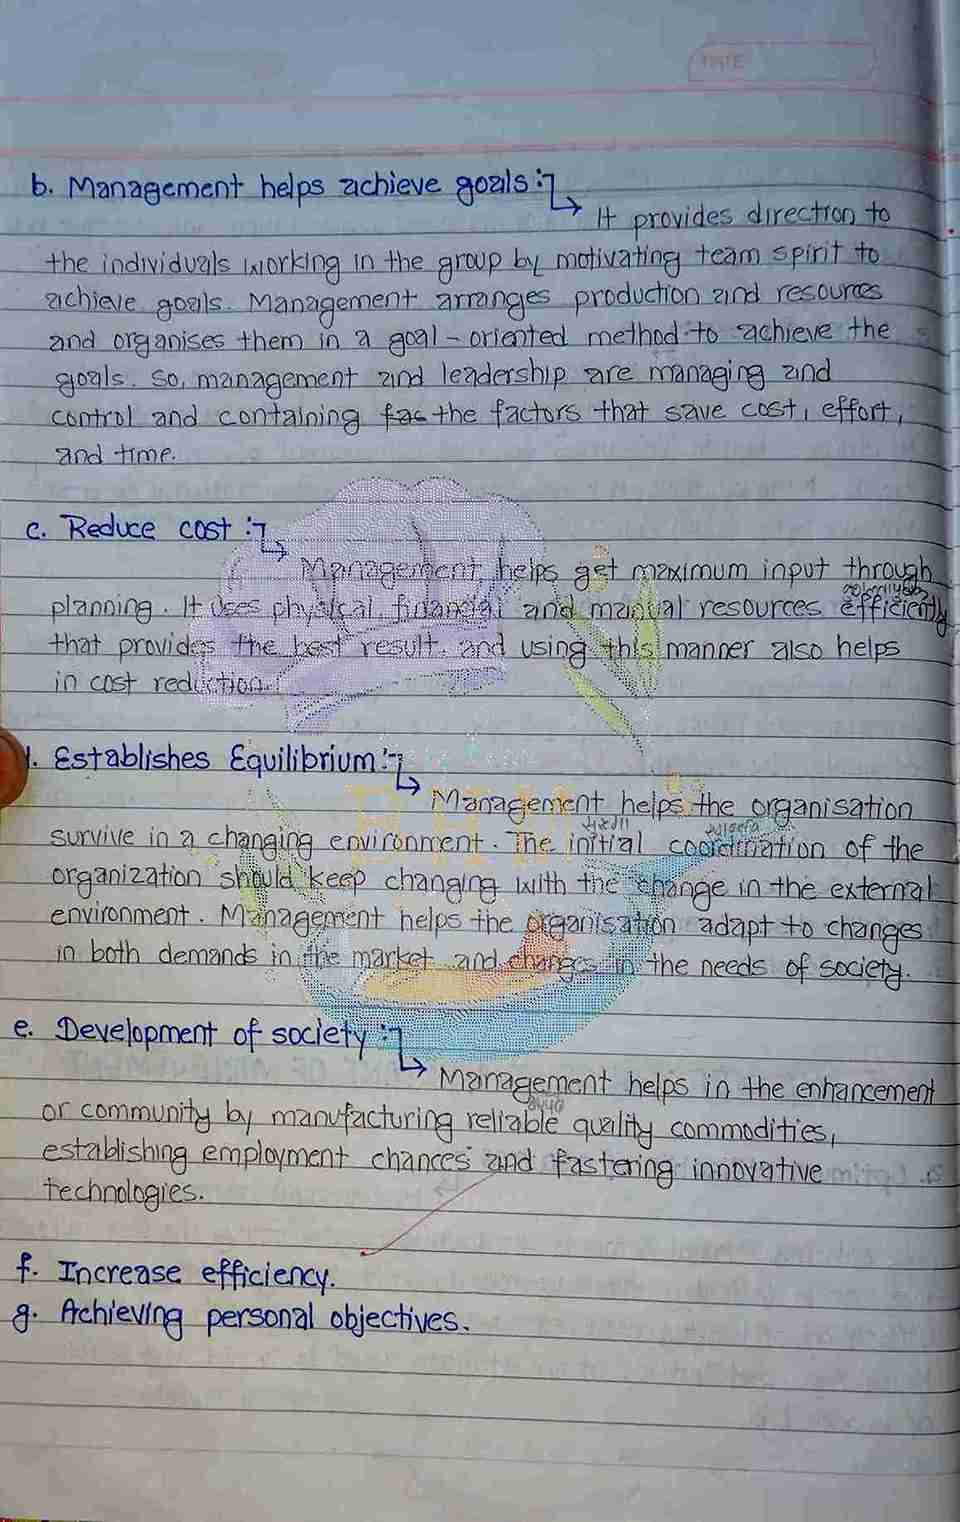 DATE
b. Management helps achieve goals :
It provides direction to
the individuals working in the group by motivating team spirit to
achieve goals. Management arranges production and resources
and organises them in a goal-oriented method to achieve the
goals. So, management and leadership are managing and
control and containing fac the factors that save cost, effort,
and time.
c. Reduce cost :
Management helps get maximum input through
planning. It uses physical, financial and manual resources efficiently
that provides the best result, and using this manner also helps
in cost reduction.
d. Establishes Equilibrium :
Management helps the organisation
survive in a changing environment. The initial coordination of the
organization should keep changing with the change in the external
environment. Management helps the organisation adapt to changes
in both demands in the market and changes in the needs of society.
e. Development of society :
Management helps in the enhancement
or community by manufacturing reliable quality commodities,
establishing employment chances and fastering innovative
technologies.
f. Increase efficiency.
g. Achieving personal objectives.